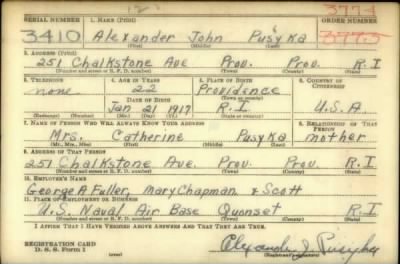 SERIAL NUMBER 1. NAME (Print) ORDER NUMBER
3410 Alexander John Pusyka 3773
(First) (Middle) (Last)
3. ADDRESS (Print)
251 Chalkstone Ave Prov. Prov. R.I
(Number and street or R. F. D. number) (Town) (County) (State)
3. TELEPHONE 4. AGE IN YEARS 5. PLACE OF BIRTH 6. COUNTRY OF CITIZENSHIP
none 22 Providence
DATE OF BIRTH (Town or county)
Jan 21 1917 R.I U.S.A.
(Exchange) (Number) (Mo.) (Day) (Yr.) (State or country)
7. NAME OF PERSON WHO WILL ALWAYS KNOW YOUR ADDRESS 8. RELATIONSHIP OF THAT PERSON
Mrs. Catherine Pusyka mother
(Mr., Mrs., Miss) (First) (Middle) (Last)
9. ADDRESS OF THAT PERSON
251 Chalkstone Ave. Prov. Prov. R.I
(Number and street or R. F. D. number) (Town) (County) (State)
10. EMPLOYER'S NAME
George A Fuller, Mary Chapman & Scott
11. PLACE OF EMPLOYMENT OR BUSINESS
U.S. Naval Air Base Quonset R.I
(Number and street or R. F. D. number) (Town) (County) (State)
I AFFIRM THAT I HAVE VERIFIED ABOVE ANSWERS AND THAT THEY ARE TRUE.
REGISTRATION CARD
D. S. S. Form 1 (over) Alexander J. Pusyka
(Registrant's signature)